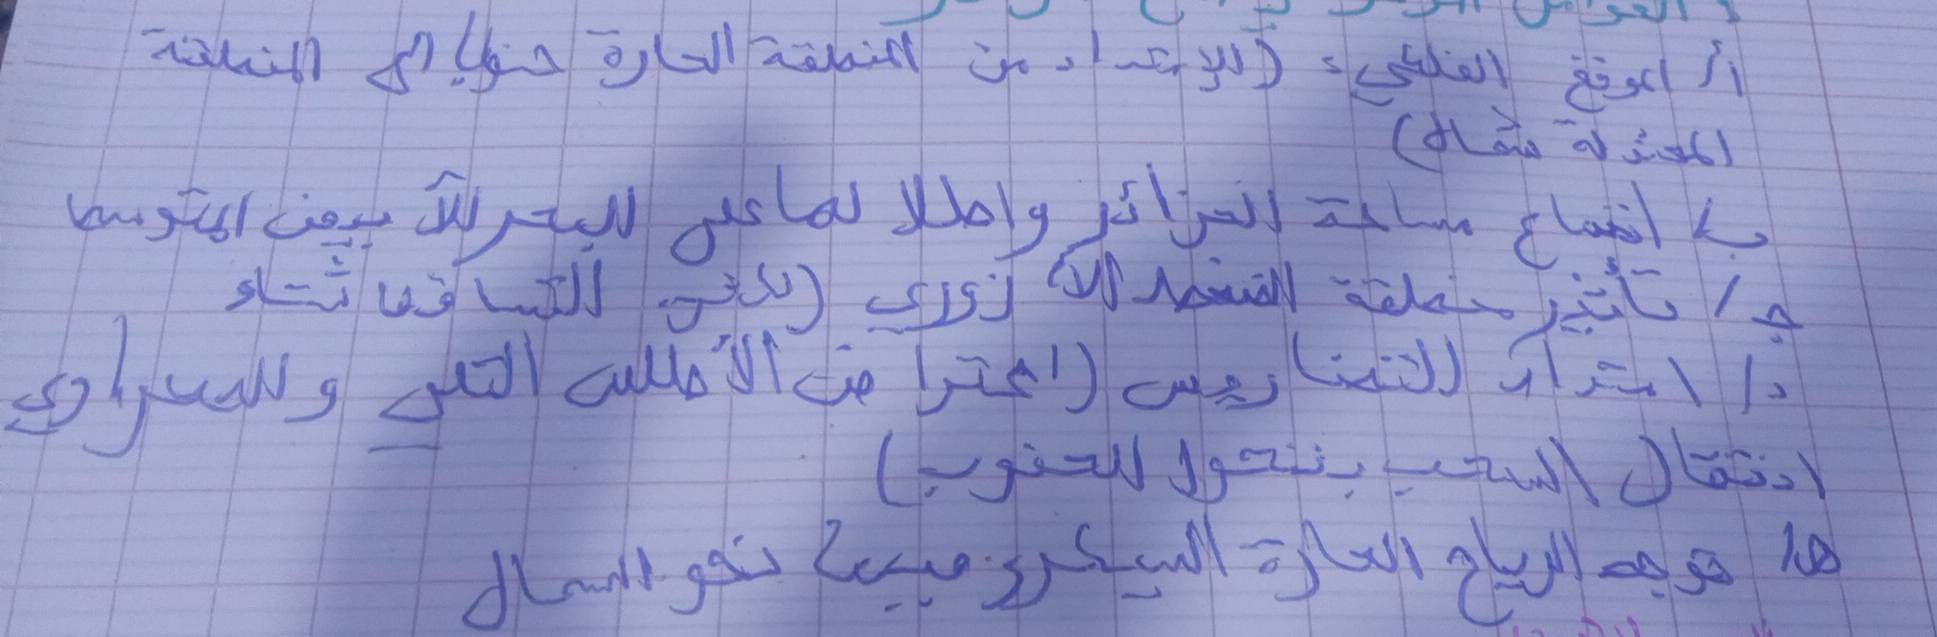 أ/ الموقع الفلكي: (الإمتداد من المنطقة الحارة جنوبا إلى المنطقة
المعتدلة شمالا)
ب/ اتساع مساحة الجزائر واطلالها على البحر الأبيض المتوسط
ج/ تأثير منطقة الضغط الآزوري (لكثرة التساقط شتاء
د/ امتداد التضاريس (اعتراض الأطلس التلي والصحراوي
انتقال السحب بنحو الجنوب)
هـ/ توجه الرياح الحارة السيكرو صيفا نحو الشمال